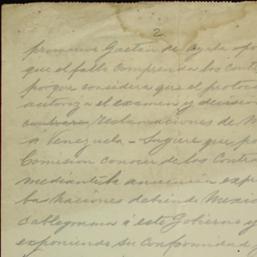 2
promueve Gaetán de Ayala opo
que el fallo comprenda los cont
porque considera que el protoc
autoriza el examen y decisión
reclamaciones de M
a Venezuela - Sugiere que p
Comisión conocer de los Contra
mediante la anuencia expre
bas Naciones debiendo Mexico
cablegrama á este Gobierno y
exponiendo su conformidad